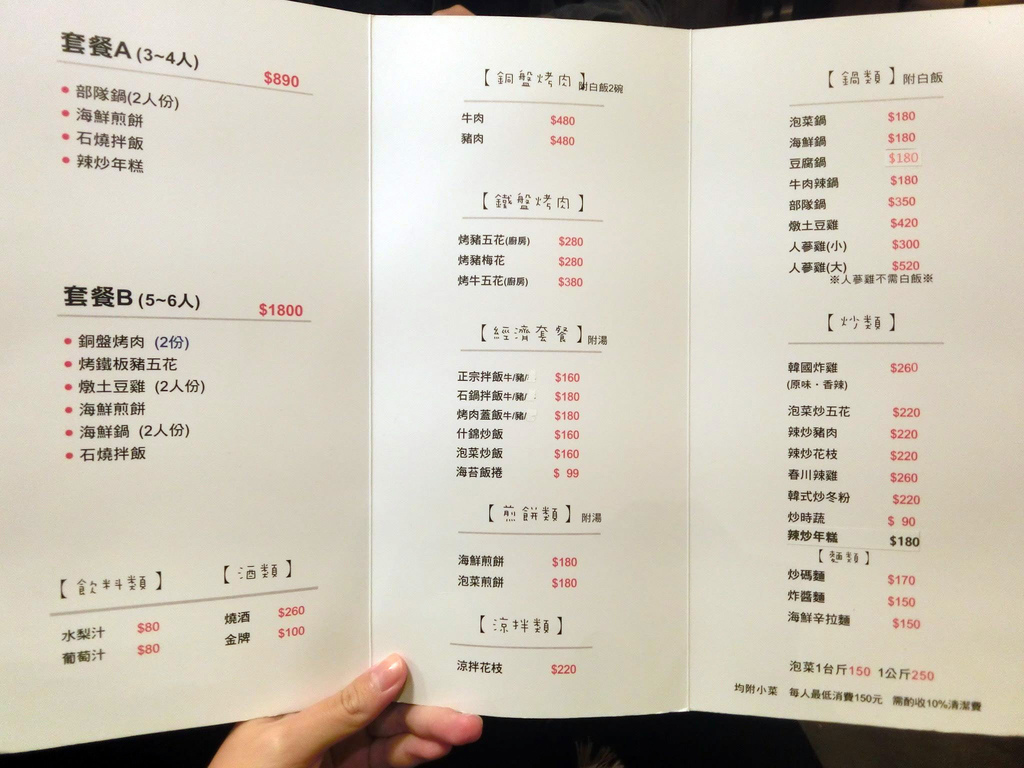 套餐A (3~4人) $890
• 部隊鍋(2人份)
• 海鮮煎餅
• 石燒拌飯
• 辣炒年糕
套餐B (5~6人) $1800
• 銅盤烤肉 (2份)
• 烤鐵板豬五花
• 燉土豆雞 (2人份)
• 海鮮煎餅
• 海鮮鍋 (2人份)
• 石燒拌飯
【飲料類】
水梨汁 $80
葡萄汁 $80
【酒類】
燒酒 $260
金牌 $100
【銅盤烤肉】附白飯2碗
牛肉 $480
豬肉 $480
【鐵盤烤肉】
烤豬五花(廚房) $280
烤豬梅花 $280
烤牛五花(廚房) $380
【經濟套餐】附湯
正宗拌飯牛/豬/ $160
石鍋拌飯牛/豬/ $180
烤肉蓋飯牛/豬/ $180
什錦炒飯 $160
泡菜炒飯 $160
海苔飯捲 $ 99
【煎餅類】附湯
海鮮煎餅 $180
泡菜煎餅 $180
【涼拌類】
涼拌花枝 $220
【鍋類】附白飯
泡菜鍋 $180
海鮮鍋 $180
豆腐鍋 $180
牛肉辣鍋 $180
部隊鍋 $350
燉土豆雞 $420
人蔘雞(小) $300
人蔘雞(大) $520
※人蔘雞不需白飯※
【炒類】
韓國炸雞 $260
(原味·香辣)
泡菜炒五花 $220
辣炒豬肉 $220
辣炒花枝 $220
春川辣雞 $260
韓式炒冬粉 $220
炒時蔬 $ 90
辣炒年糕 $180
【麵類】
炒碼麵 $170
炸醬麵 $150
海鮮辛拉麵 $150
泡菜1台斤150 1公斤250
均附小菜 每人最低消費150元 需酌收10%清潔費